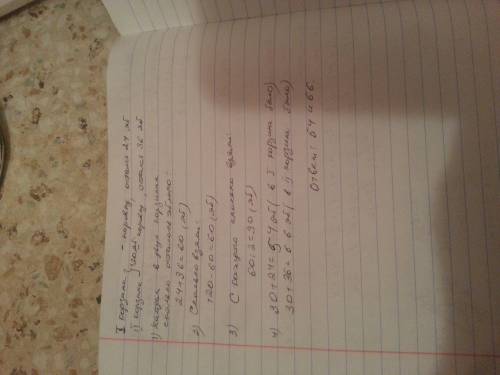 I корзина } - поровну, осталось 24 яб
II корзина } 120яб поровну, остался 36 яб
1) в двух корзинах
сколько осталось яблок:
24+36=60 (яб)
2) Сколько взяли:
120-60=60 (яб)
3) С каждого сколько взяли:
60:2=30 (яб)
4) 30+24=54 яб ( в I корзина было)
30+36=66 яб ( в II корзина было)
Ответ: 54 и 66.